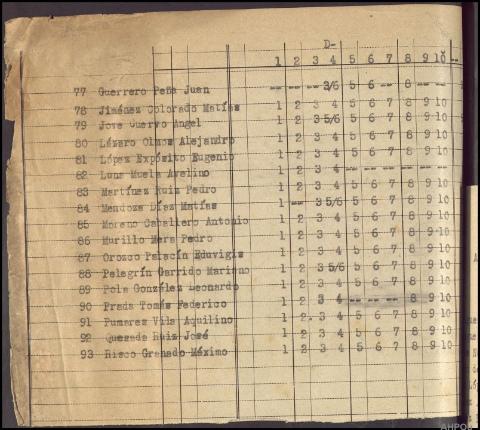 D-
1 2 3 4 5 6 7 8 9 10 --
77 Guerrero Peña Juan -- -- -- 3/6 5 6 -- 8 -- --
78 Jiménez Colorado Matías 1 2 3 4 5 6 7 8 9 10
79 Jove Cuervo Angel 1 2 3 5/6 5 6 7 8 9 10
80 Lázaro Olmos Alejandro 1 2 3 4 5 6 7 8 9 10
81 López Expósito Eugenio 1 2 3 4 5 6 7 8 9 10
82 Luna Muela Avelino 1 2 3 4 -- -- -- -- -- --
83 Martínez Ruiz Pedro 1 2 3 4 5 6 7 8 9 10
84 Mendoza Díaz Matías 1 -- 3 5/6 5 6 7 8 9 10
85 Moreno Caballero Antonio 1 2 3 4 5 6 7 8 9 10
86 Murillo Mera Pedro 1 2 3 4 5 6 7 8 9 10
87 Orozco Palacín Eduvigis 1 2 3 4 5 6 7 8 9 10
88 Pelegrín Garrido Mariano 1 2 3 5/6 5 6 7 8 9 10
89 Pola González Leonardo 1 2 3 4 5 6 7 8 9 10
90 Prada Tomás Federico 1 2 3 4 -- -- -- 8 9 10
91 Pumares Vila Aquilino 1 2 3 4 5 6 7 8 9 10
92 Quesada Ruiz José 1 2 3 4 5 6 7 8 9 10
93 Risco Granado Máximo 1 2 3 4 5 6 7 8 9 10